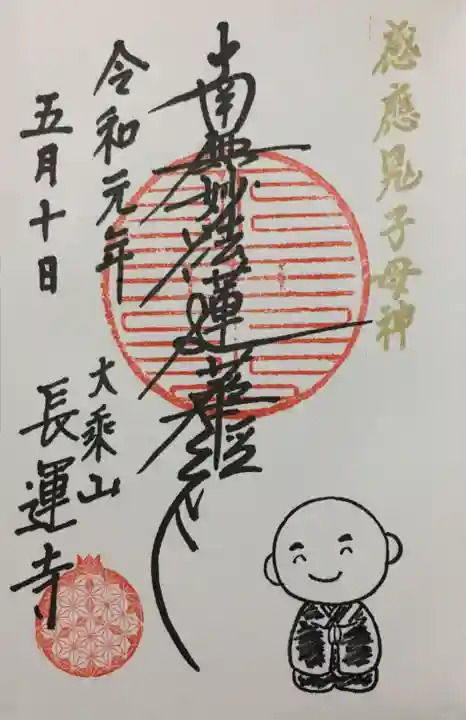 感應鬼子母神
南無妙法蓮華経
令和元年
五月十日
大乗山
長運寺